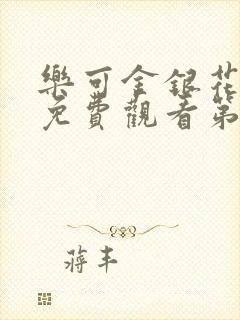 樂可金銀花
免費觀看第
蔣丰